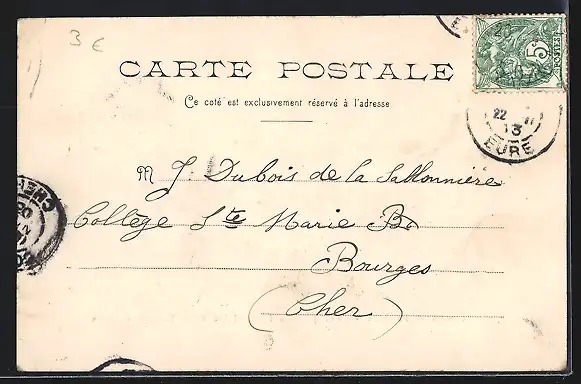 3 €
CARTE POSTALE
Ce coté est exclusivement réservé à l'adresse
5c
POSTES
22
13
EURE
M J. Dubois de la Sablonnière
Collège Ste Marie Bd
Bourges
(Cher)
CHER